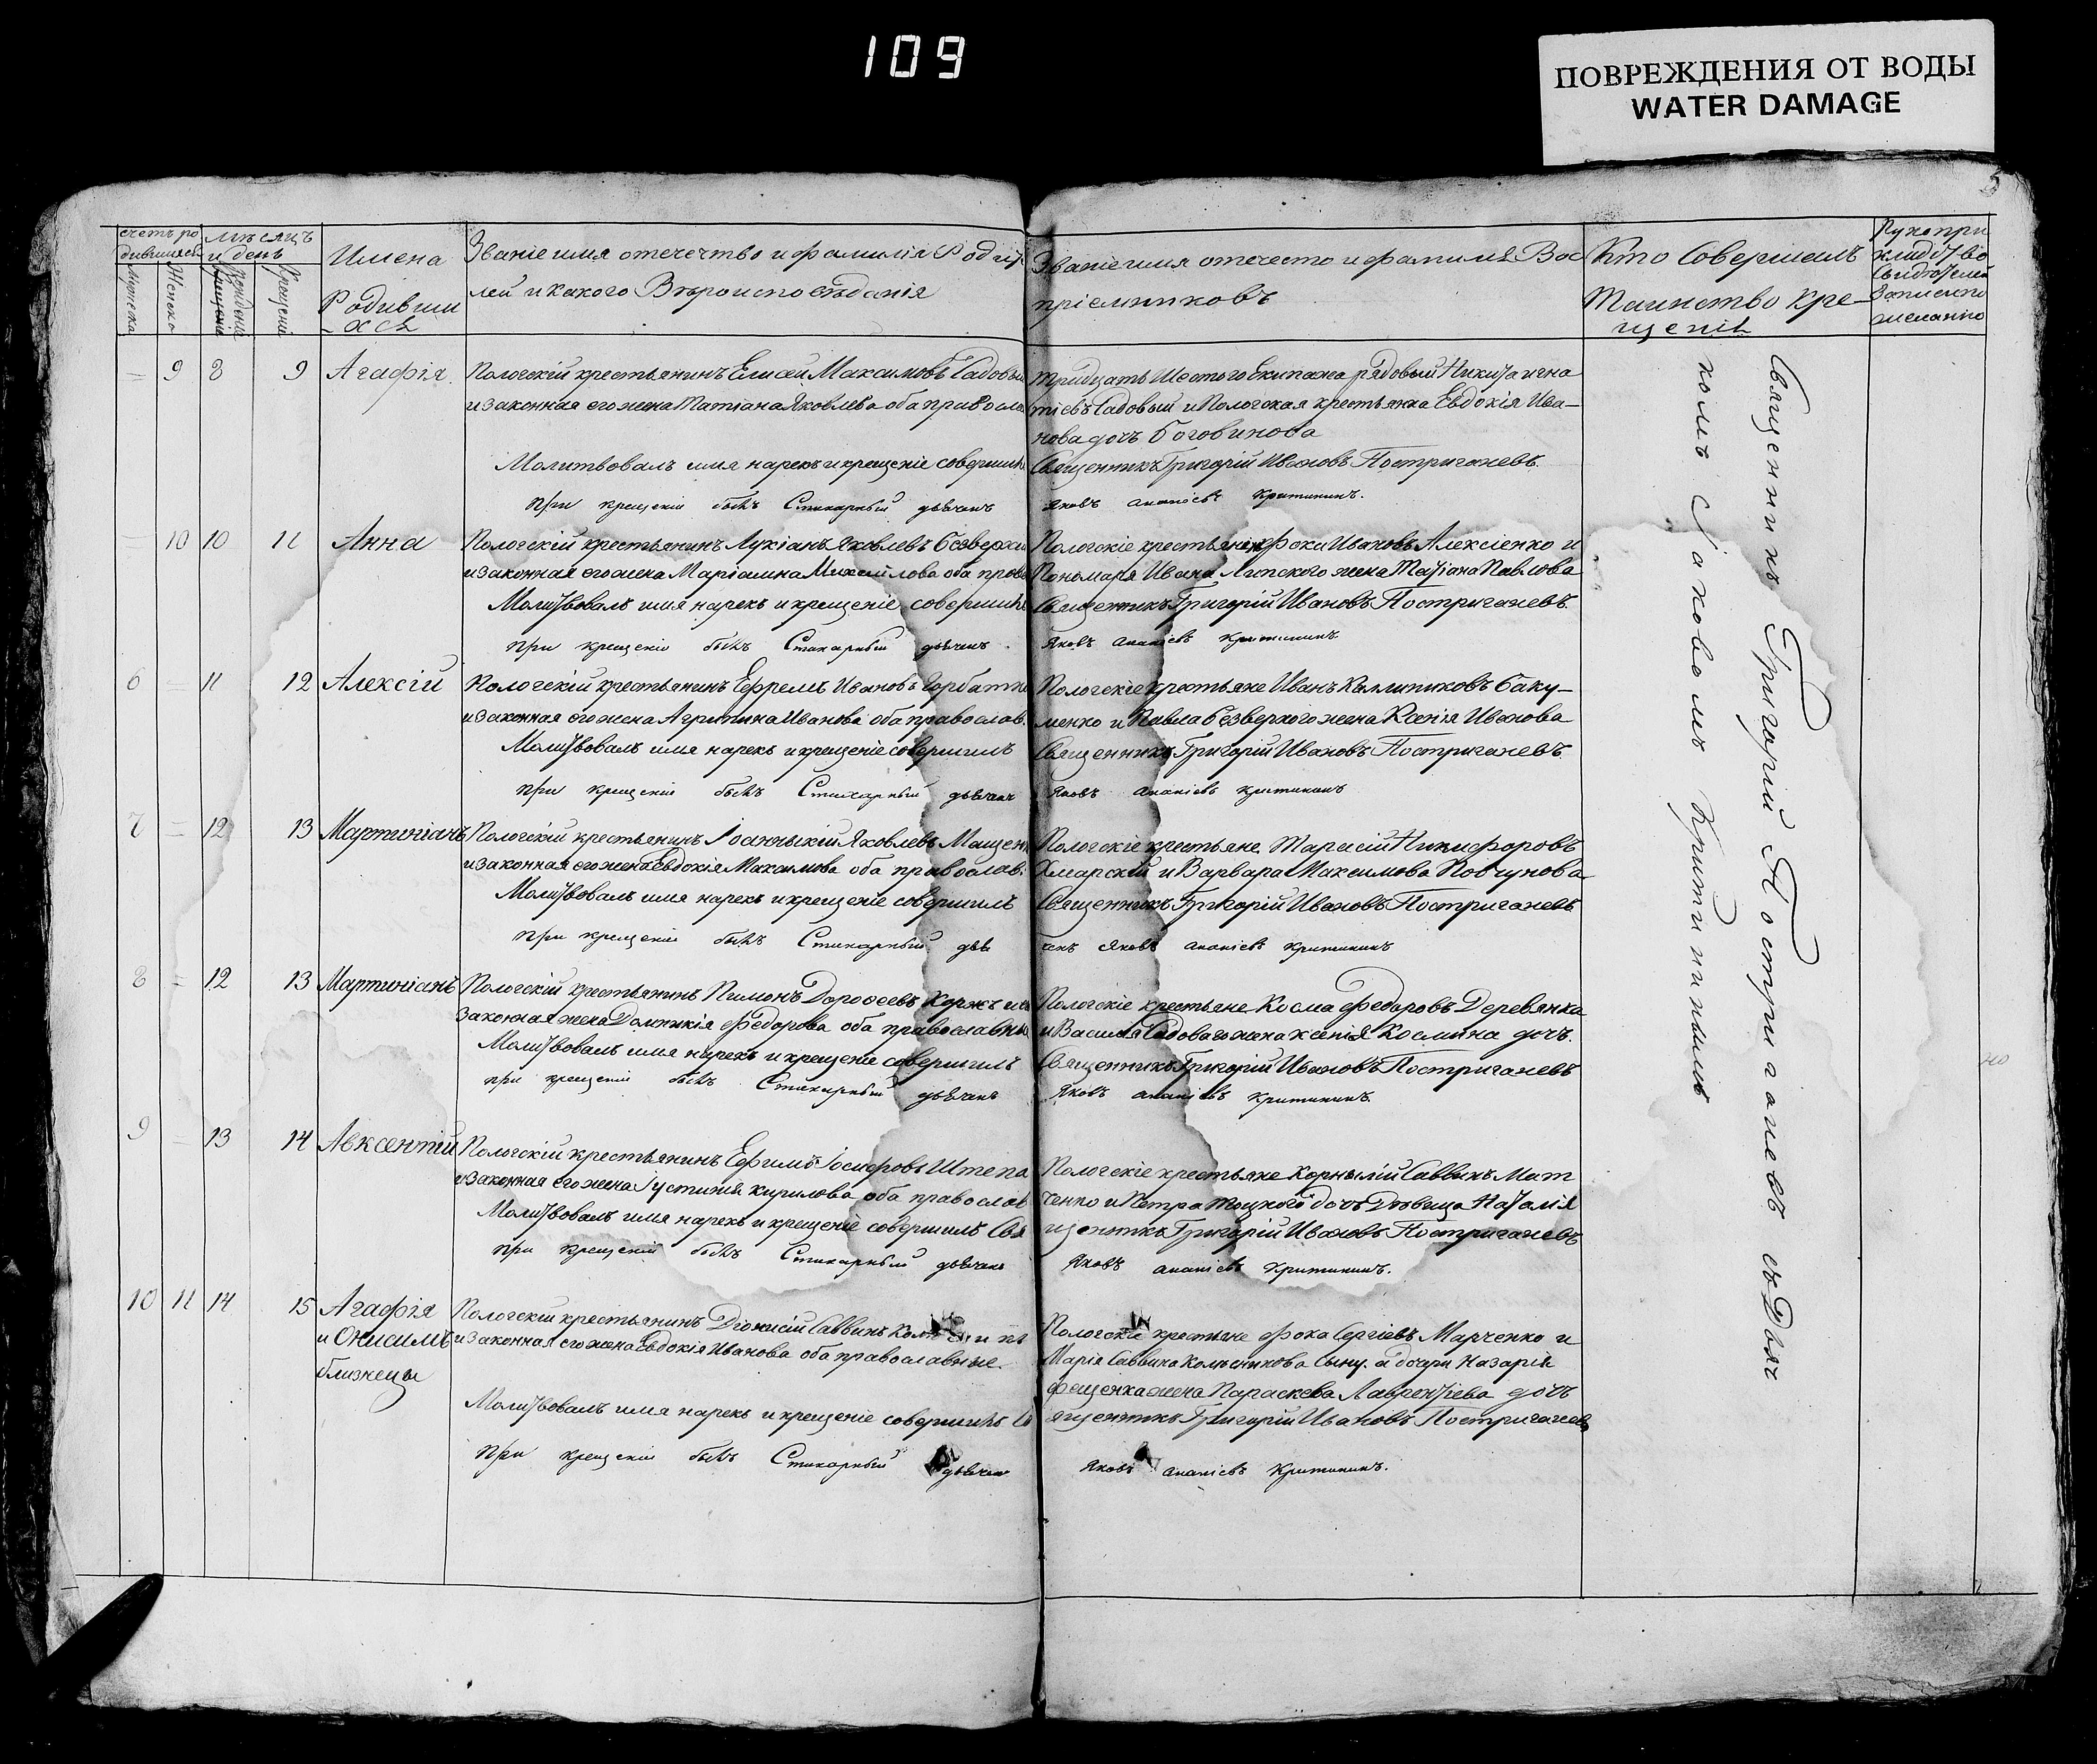 109
ПОВРЕЖДЕНИЯ ОТ ВОДЫ
WATER DAMAGE
5
счетъ ро
дившихся
мѣсяцъ
и день
Имена
Родивши
-хся
Званіе имя отечество и фамилія Родит
лей и какого Вѣроисповѣданія
Званіе имя отечесто и фамилія Вос
пріемниковъ
Кто Совершилъ
Таинство Кре-
щенія
Рукопри
кладство
Свидѣтелей
Записи по
желанію
Мужеска
Женско
Рожденіе
Крещеніе
= 9 8 9 Агафія
Пологскій крестьянинъ Елисѣй Максимовъ Садовый
и законная его жена Татіана Яковлева оба правосла
Молитвовалъ имя нарекъ и крещеніе совершилъ
При крещеніи былъ Стихарный дьячекъ
Тридцать Шестого Екипажа рядовый Никита Игна
тіевъ Садовый и Пологская крестьянка Евдокія Ива-
нова дочь Боговинова
Священникъ Григорій Ивановъ Постригачевъ.
Яковъ Ананіевъ Критининъ.
= 10 10 11 Анна
Пологскій крестьянинъ Лукіанъ Яковлевъ Безверхи
и законная его жена Маріамна Михайлова оба право
Молитвовалъ имя нарекъ и крещеніе совершилъ
При крещеніи былъ Стихарный дьячекъ
Пологскіе крестьяне Фока Ивановъ Алексіенко и
Пономаря Ивана Липского жена Татіана Павлова
Священникъ Григорій Ивановъ Постригачевъ.
Яковъ Ананіевъ Критининъ
6 = 11 12 Алексій
Пологскій крестьянинъ Ефремъ Ивановъ Горбатко
и законная его жена Агрипина Иванова оба православ.
Молитвовалъ имя нарекъ и крещеніе совершилъ
При крещеніи былъ Стихарный дьячекъ
Пологскіе крестьяне Иванъ Каллиниковъ Баку-
менко и Павла Безверхого жена Ксенія Иванова
Священникъ Григорій Ивановъ Постригачевъ
Яковъ Ананіевъ Критининъ
7 = 12 13 Мартиніанъ
Пологскій крестьянинъ Іоанникій Яковлевъ Мащен
и законная его жена Евдокія Максимова оба православ.
Молитвовалъ имя нарекъ и крещеніе совершилъ
При крещеніи былъ Стихарный дья
Пологскіе крестьяне Тарасій Никифоровъ
Хмарскій и Варвара Максимова Повчунова
Священникъ Григорій Ивановъ Постригачевъ
чекъ Яковъ Ананіевъ Критининъ
8 = 12 13 Мартиніанъ
Пологскій крестьянинъ Пимонъ Дорофеевъ Коржъ и
законная жена Домникія Федорова оба православные
Молитвовалъ имя нарекъ и крещеніе совершилъ
При крещеніи былъ Стихарный дьячекъ
Пологскіе крестьяне Косма Федоровъ Деревянка
и Василія Садоваго жена Ксенія Космина дочь.
Священникъ Григорій Ивановъ Постригачевъ
Яковъ Ананіевъ Критининъ.
9 = 13 14 Авксентій
Пологскій крестьянинъ Ефимъ Іосифовъ Штепа
и законная его жена Іустинія Кирилова оба православ
Молитвовалъ имя нарекъ и крещеніе совершилъ Свя
При крещеніи былъ Стихарный дьячекъ
Пологскіе крестьяне Корнилій Саввинъ Мат
ченко и Петра Тоцкого дочь Дѣвица Наталія
щенникъ Григорій Ивановъ Постригачевъ
Яковъ Ананіевъ Критининъ.
10 11 14 15 Агафія
и Онисимъ
близнецы
Пологскій крестьянинъ Діонисій Саввинъ
и законная его жена Евдокія Иванова оба православные
Молитвовалъ имя нарекъ и крещеніе совершилъ Св
При крещеніи былъ Стихарный дьячек
Пологскіе крестьяне Фока Сергіевъ Марченко и
Марія Саввина Колѣсникова Сыну. а дочери Назарія
Фещенка жена Параскева Лаврентіева дочь
ященникъ Григорій Ивановъ Постригачевъ
Яковъ Ананіевъ Критининъ.
Священникъ Григорій Постригачевъ съ Дьяч
комъ Іаковомъ Критининымъ